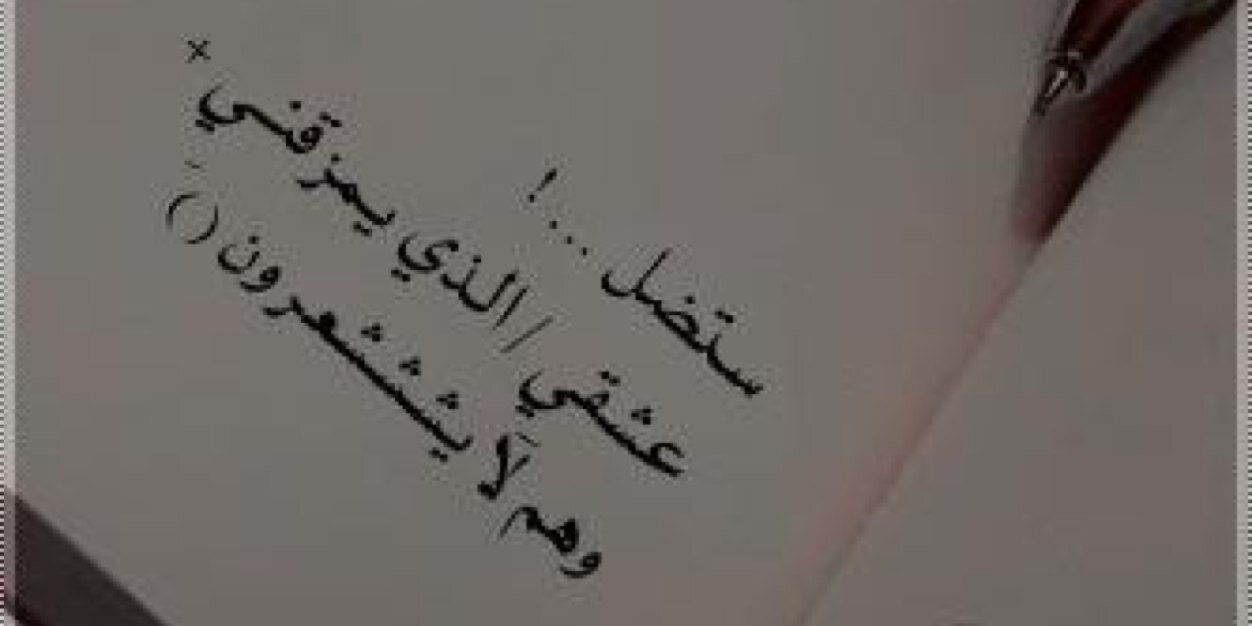 ستضل ...!
عشقي / الذي يمزقني ×
وهم لَا يشششعرون ()